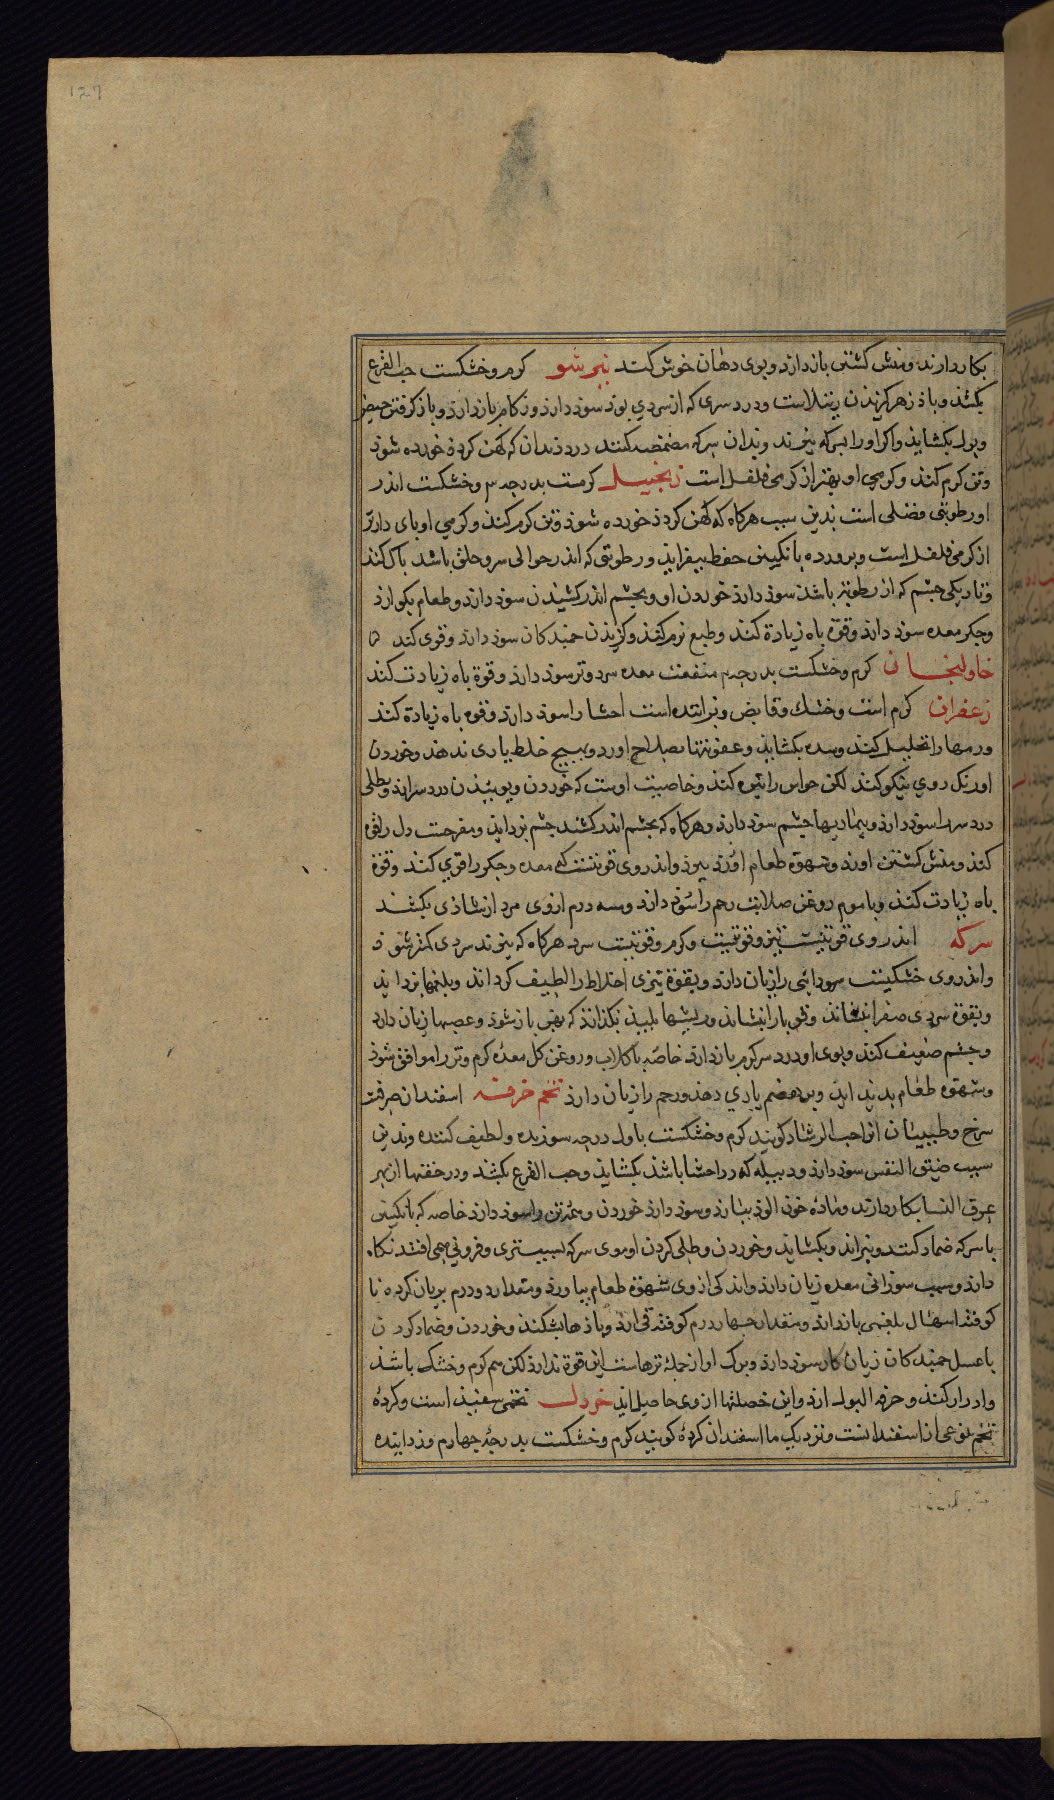 127
بکار دارند و منش کشتن باز دارد و بوی دهان خوش کند کرم و خشکست حب القرع
بکشذ و باذ زهر کزیدن رتیلاست و درد سری که از سردی بوذ سوذ دارد و زکام باز دارد و باز کرفتن حیض
و بول بکشاید و اکر او را بسرکه بپزند و بدان سرکه مضمضه کنند درد دندان که کهن کرده خورده شوذ
و تن کرم کند و کرمی او بهتر از کرمی فلفل است زنجبیل کرمست بدرجه س و خشکست اندر
او رطوبتی فضلی است بدین سبب هرکاه که کهن کردذ خورده شوذ و تن کرم کند و کرمی او بای دارتر
از کرمی فلفل است و پرورده بانکبین حفظ بیفزاید و رطوبتی که اندر حوالی سر و حلق باشد پاک کند
و تاریکی چشم که از رطوبة باشذ سوذ دارذ خوردن او و بچشم اندر کشیذن سوذ دارد و طعام بکوارذ
و جکر و معده سوذ دارذ و قوة باه زیادة کند و طبع نرم کند و کزیدن جمندکان سوذ دارد و قوی کند
خاولنجان کرم و خشکست بدرجه س منفعت معده سرد و تر سوذ دارد و قوة باه زیادت کند
زعفران کرم است و خشک و قابض و بزاننده است احشا را سوذ دارد و قوه باه زیادة کند
ورمها را تحلیل کند و سده بکشاید و عفونتها بصلاح آورد و بهیچ خلط یاری ندهد و خوردن
او رنک روی نیکو کند لکن حواس را تیره کند و خاصیت اوست که خوردن و بوییذن درد سر آرد و بطلی
درد سر را سوذ دارد و بیماریها چشم سوذ دارد و هرکاه که بچشم اندر کشند چشم بزداید و مفرحست دل را قوه
کند و منش کشتن آورد و شهوة طعام ببرد و اندر وی قوتیست که معده و جکر را قوی کند و قوة
باه زیادت کند و با موم روغن صلابت رحم را سوذ دارد و سه درم از وی مرد از شاذی بکشد
سرکه اندر وی قوتیست تیز و قوتیست کرم و قوتیست سرد هرکاه که بپزند سردی کمتر شوذ
و اندر وی خشکیست سودایی را زیان دارد و بقوة تیزی اخلاط را لطیف کرداند و بلغمها بزداید
و بقوة سردی صفرا بنشاند و قی باز ایستاند و ریشها پلیذ نکذارد که پهن باز شوذ و عصبها زیان دارد
و چشم ضعیف کند و بوی او درد سر کرم باز دارد خاصه با کلاب و روغن کل معده کرم و تر را موافق شوذ
و شهوة طعام پدید آرد و بر هضم یاری دهد و رحم را زیان دارد تخم خرفه اسفندان خرفت
سرخ و طبیبان او را حب الرشاد کویند کرم و خشکست باول درجه سوزنده و لطیف کننده و بدین
سبب ضیق النفس سوذ دارد و دبیله که در احشا باشذ بکشاید و حب القرع بکشد و در حقنها از بهر
عرق النسا بکار دارند و ماده خون آلوذ بیارد و سوذ دارد خوردن و همه تن را سوذ دارد خاصه که بانکبین
یا سرکه ضماد کنند و بپزاند و بکشاید و خوردن و طلی کردن او موی سر که بسبب تری و فرونی همی افتد نکاه
دارد و بسبب سوزانی معده زیان دارد و اندکی از وی شهوة طعام بیاورد و مقدار دو درم بریان کرده نا
کوفته اسهال بلغمی باز دارد و مقدار چهار درم کوفته قی آرد و باذها بشکند و خوردن و ضماد کردن
با عسل جمندکان زیان کار سوذ دارد و برک او از جمله ترهاست این قوة ندارد لکن هم کرم و خشک باشذ
و ادرار کند و حرقه البول آرد و این خصلتها از وی حاصل آید خردل تخمی سفیذ است و کرده
تخم نوعی از اسفندانست و نزدیک ما اسفندان کرده کویند کرم و خشکست بدرجه چهارم و زداینده